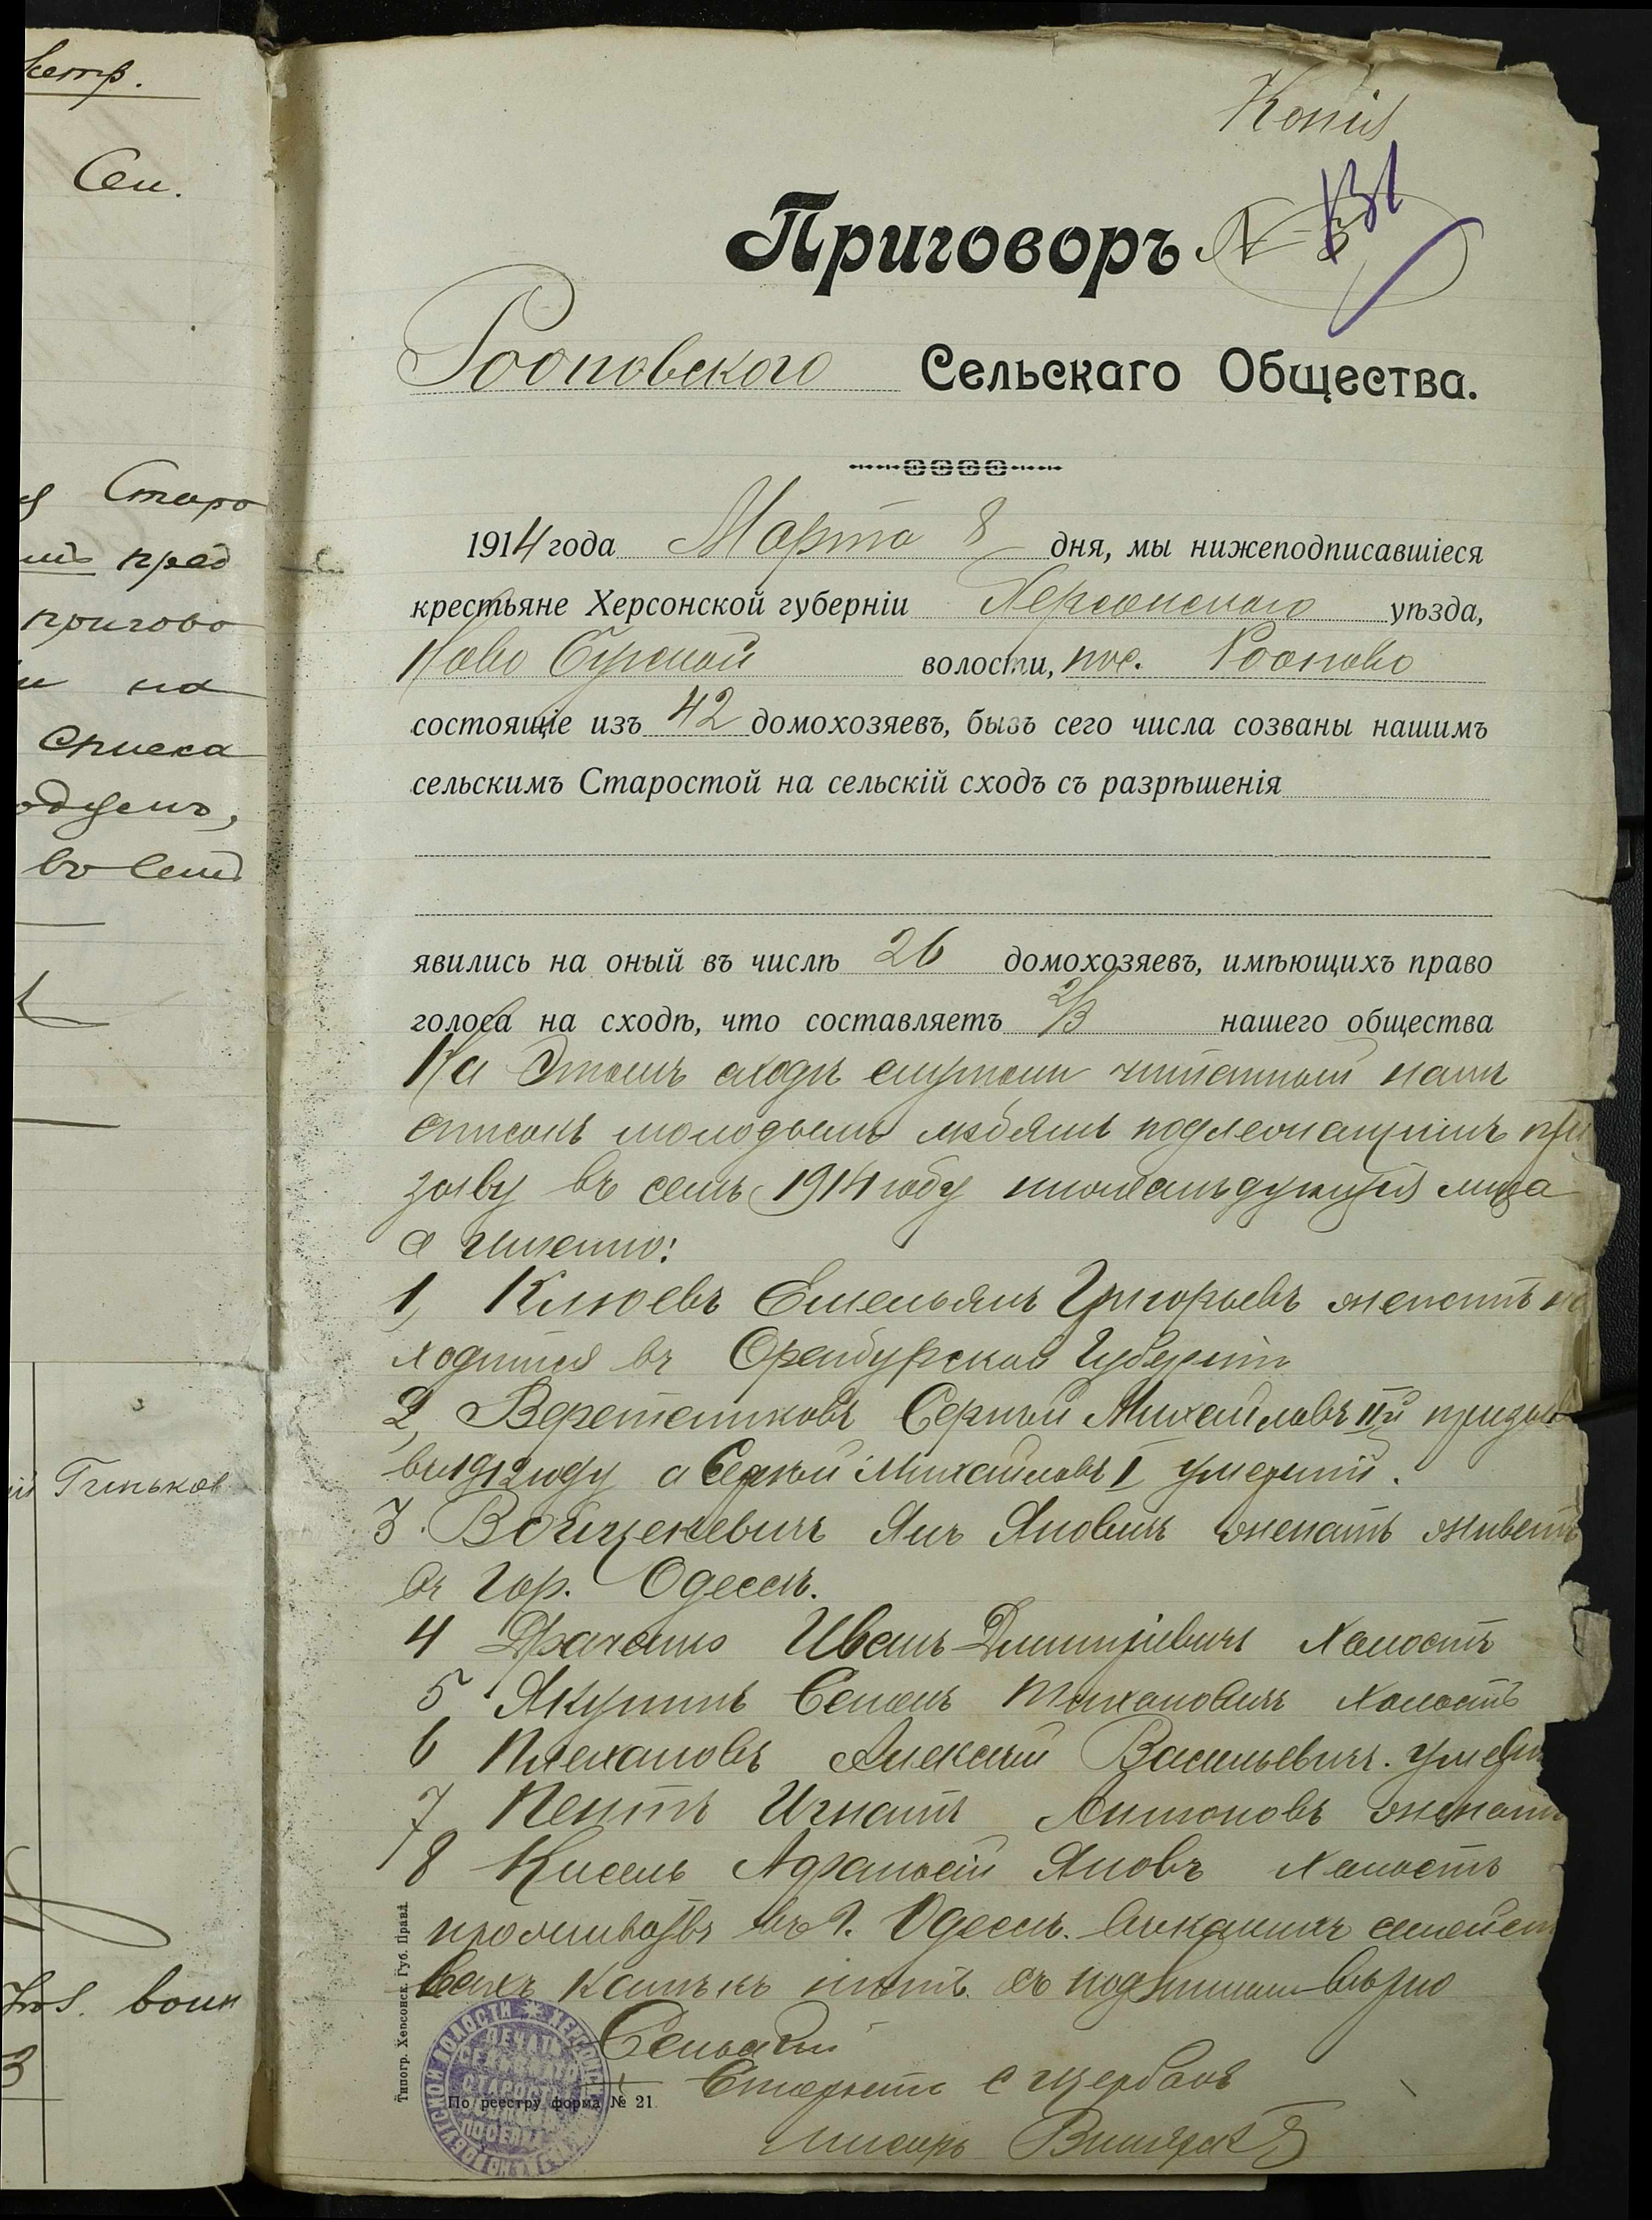 Сен.
Старо
пред
пригово
на
списка
Гиньков
воин
Копія
Приговоръ № 3
131
Рооповского Сельскаго Общества.
1914 года Марта 8 дня, мы нижеподписавшіеся
крестьяне Херсонской губерніи Херсонского уѣзда,
Ново Бугской волости, пос. Роопово
состоящіе изъ 42 домохозяевъ, бывъ сего числа созваны нашимъ
сельскимъ Старостой на сельскій сходъ съ разрѣшенія
явились на оный въ числѣ 26 домохозяевъ, имѣющихъ право
голоса на сходѣ, что составляетъ 2/3 нашего общества
На Этомъ сходѣ слушали читанный намъ
списокъ молодымъ людямъ подлежащимъ при
зыву въ семъ 1914 году нижеслѣдующія лица
а именно:
1, Клюевъ Емельянъ Григорьевъ женатъ на
ходится въ Оренбурской Губерніи
2, Веретенниковъ Сергѣй Михайловъ II й призыв
въ 1912 году а Сергѣй Михайловъ I умершій.
3. Войцекевичъ Янъ Яновичъ женатъ живетъ
въ гор. Одессѣ.
4 Драченко Иванъ Дмитріевичъ Холостъ
5 Якунинъ Семенъ Тихановичъ Холостъ
6 Плехановъ Алексѣй Васильевичъ. умер
7 Пентъ Игнатъ Антоновъ женатъ
8 Кисель Афанасій Яновъ Холостъ
проживаетъ въ г. Одессѣ. семейст
вахъ нѣтъ. съ подлиннымъ вѣрно
Сельскій
Староста С Щербань
писарь
По реестру форма № 21.
Типогр. Херсонск. Губ. Правл.